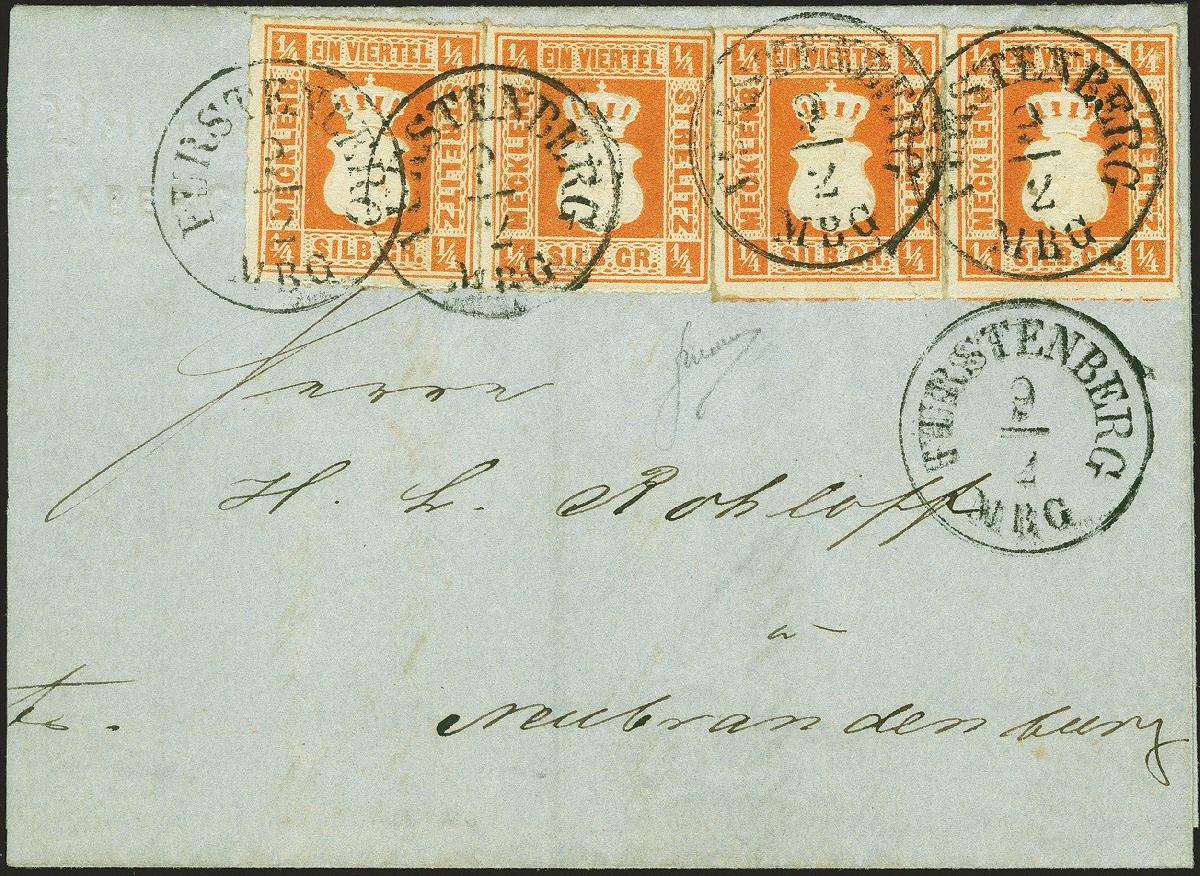 1/4 EIN VIERTEL 1/4
MECKLENB.
STRELITZ
1/4 SILB.GR. 1/4
1/4 EIN VIERTEL 1/4
MECKLENB.
STRELITZ
1/4 SILB.GR. 1/4
1/4 EIN VIERTEL 1/4
MECKLENB.
STRELITZ
1/4 SILB.GR. 1/4
1/4 EIN VIERTEL 1/4
MECKLENB.
STRELITZ
1/4 SILB.GR. 1/4
FURSTENBERG
MBG
FURSTENBERG
9
2
MBG
FURSTENBERG
9
2
MBG
FURSTENBERG
9
2
MBG
FURSTENBERG
9
2
MBG
Herrn
H. L. Rohloff
a
fr.
Neubrandenburg